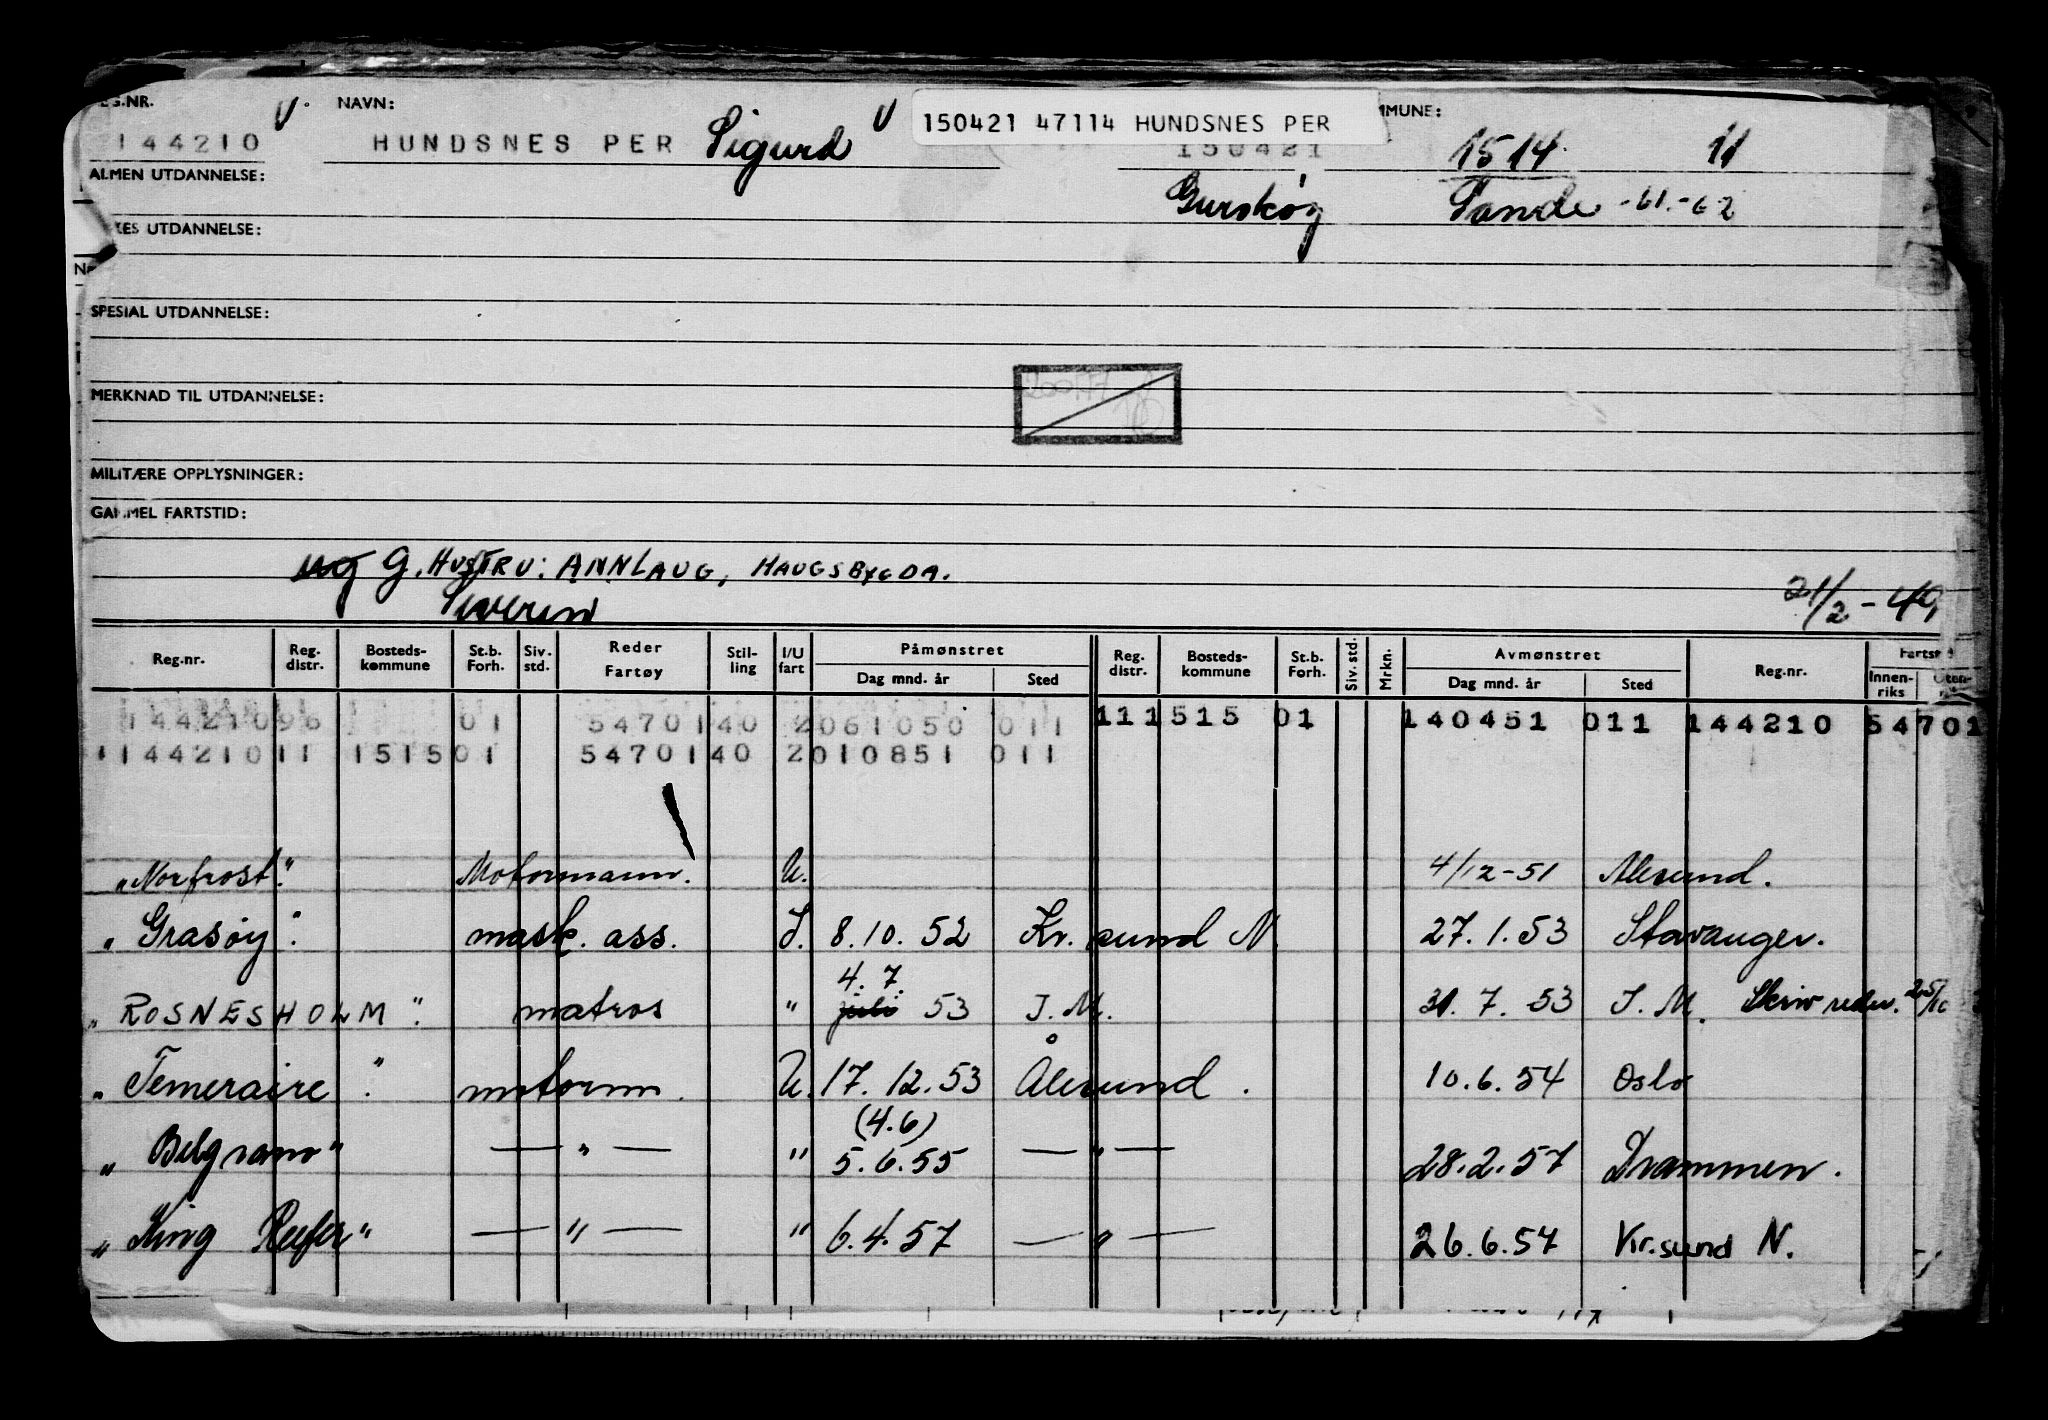 REG.NR. NAVN: KOMMUNE:
150421 47114 HUNDSNES PER
144210 HUNDSNES PER Sigurd 150421 1514 11
ALMEN UTDANNELSE: Gurskøy Sande -61.-62
UTDANNELSE:
SPESIAL UTDANNELSE:
MERKNAD TIL UTDANNELSE:
MILITÆRE OPPLYSNINGER:
GAMMEL FARTSTID:
ug G. HUSTRU: ANNLAUG, HAUGSBYGDA.
21/2-49
Reg.nr. Reg. distr. Bosteds-kommune St.b. Forh. Siv. std. Reder Fartøy Stil-ling I/U fart Påmønstret Dag mnd. år Sted Reg. distr. Bosteds-kommune St.b. Forh. Siv. std. Mrkn. Avmønstret Dag mnd. år Sted Reg.nr. Innen-riks
14421096 01 5470140 2061050 011 111515 01 140451 011 144210 54701
114421011 151501 5470140 2010851 011
"Norfrost" Motormann. U. 4/12-51 Ålesund.
"Grasøy". mask. ass. I. 8.10.52 Kr. sund N. 27.1.53 Stavanger.
4.7.
"ROSNESHOLM". matros " juli 53 I.M. 31.7.53 I.M. Skriv reder. 25/10
"Temeraire". motorm. U. 17.12.53 Ålesund. 10.6.54 Oslo
(4.6)
"Belgrano" — " — " 5.6.55 — " — 28.2.57 Drammen.
"King Reefer" — " — " 6.4.57 — " — 26.6.57 Kr.sund N.